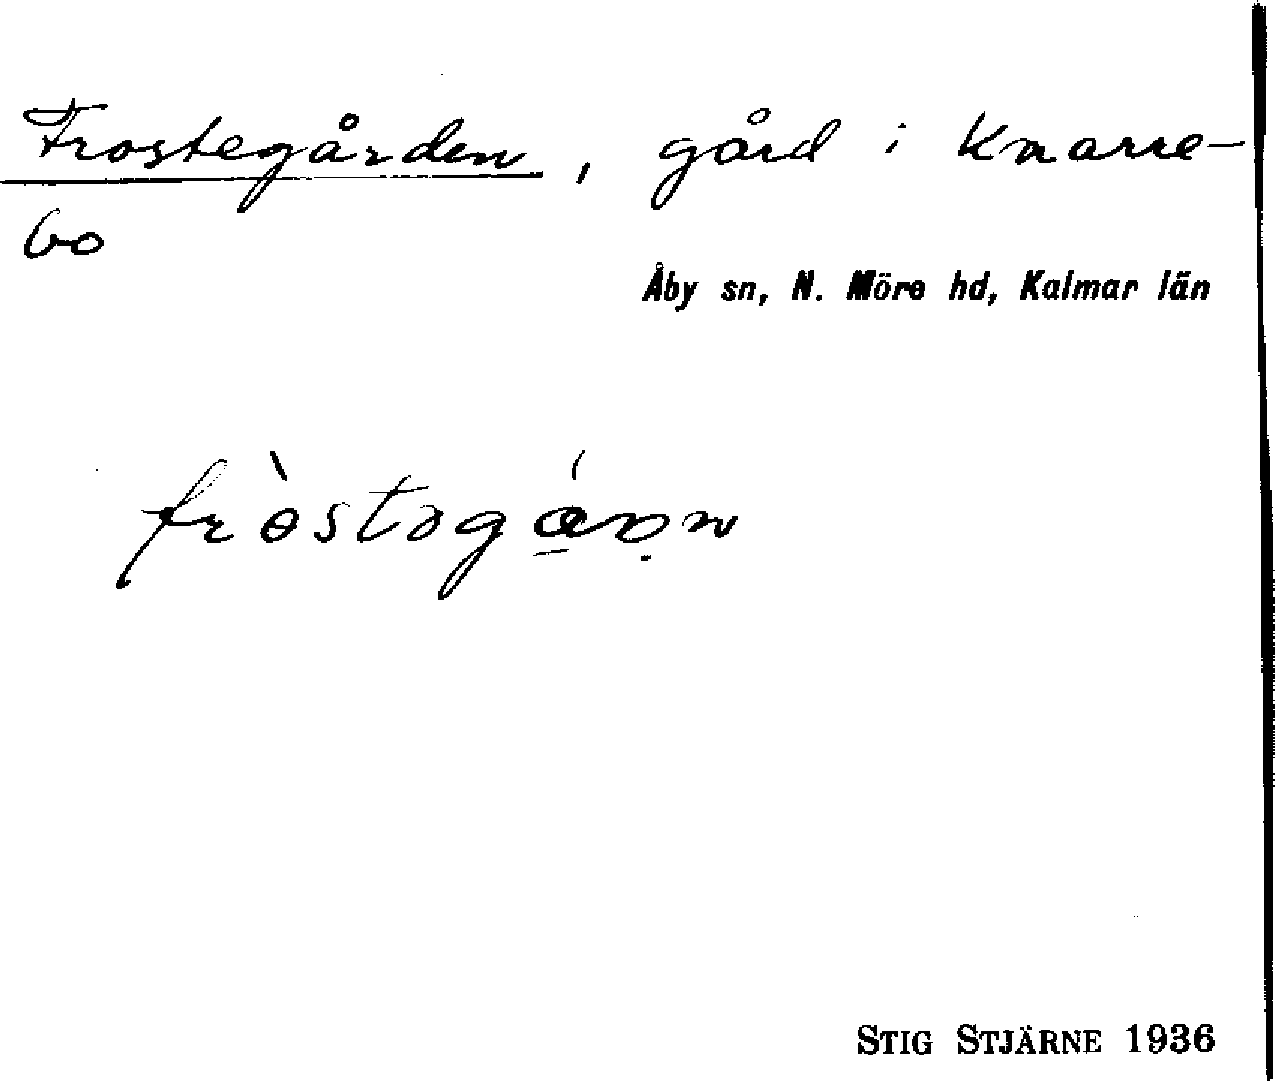 Frostegården, gård i Knarre-
bo
Åby sn, N. Möre hd, Kalmar län
STIG STJÄRNE 1936